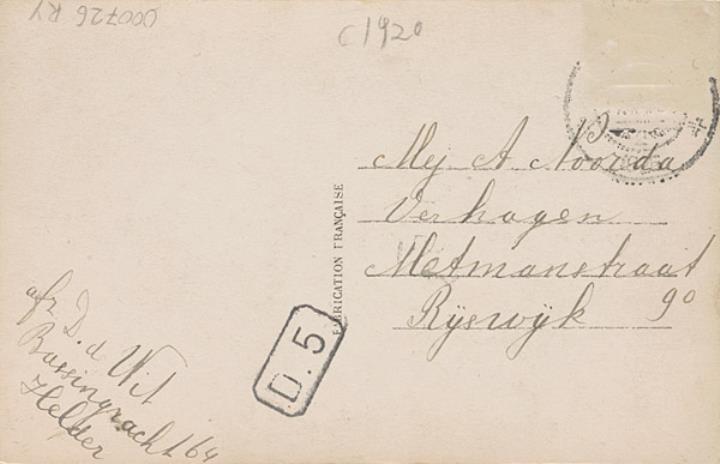 000726 RY
C1920
Mej A Noorda
Verhagen
Metmanstraat
90
Rijswijk
FABRICATION FRANÇAISE
D.5
afz D. d. Wit
Bassingracht 164
Helder